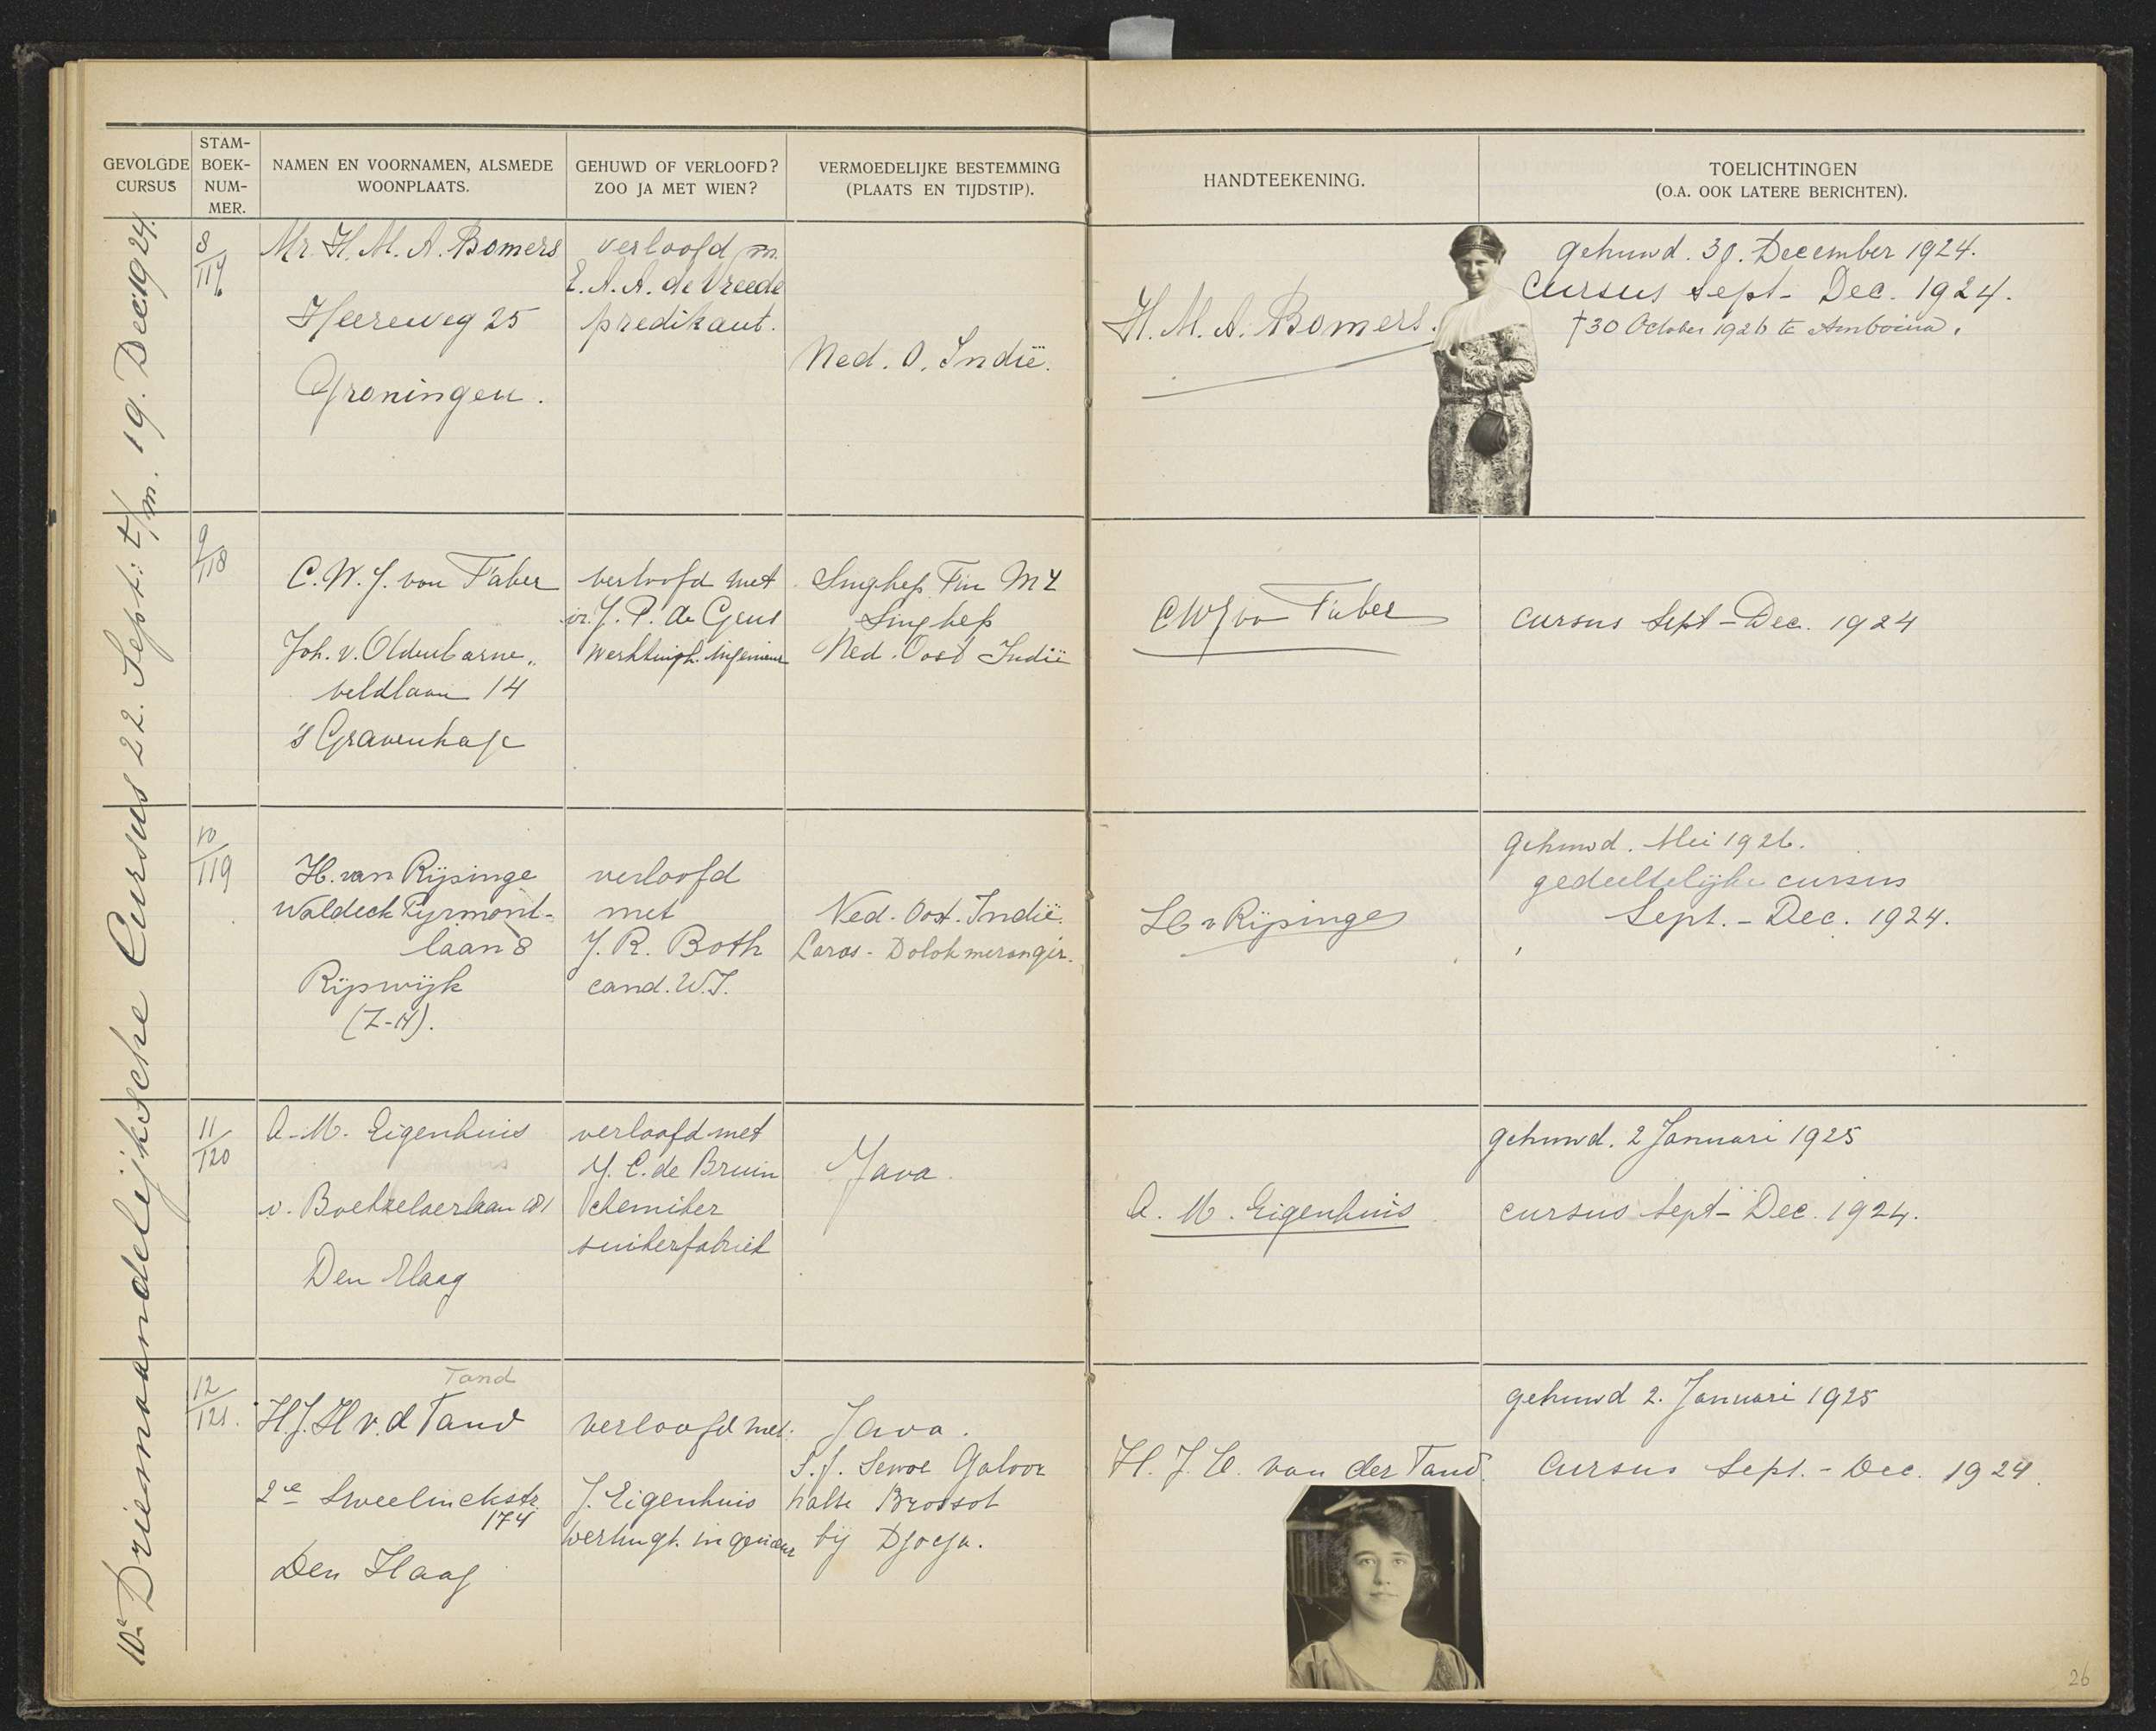 GEVOLGDE
CURSUS
STAM-
BOEK-
NUM-
MER.
NAMEN EN VOORNAMEN, ALSMEDE
WOONPLAATS.
GEHUWD OF VERLOOFD?
ZOO JA MET WIEN?
VERMOEDELIJKE BESTEMMING
(PLAATS EN TIJDSTIP).
HANDTEEKENING.
TOELICHTINGEN
(O.A. OOK LATERE BERICHTEN).
10e Driemaandelijksche Cursus 22. Sept: t/m. 19. Dec: 1924.
8/117
Mr. H. M. A. Bomers
Heereweg 25
Groningen.
verloofd m.
E. A. A. de Vreede
predikant.
Ned. O. Indië.
H. M. A. Bomers.
gehuwd. 30. December 1924.
Cursus Sept - Dec. 1924.
† 30 October 1926 te Amboina.
9/118
C. W. J. von Faber
Joh. v. Oldenbarne„
veldlaan 14
's Gravenhage
verloofd met
ir. J. P. de Geus
Werktuigk. Ingenieur
Singkep Tin My
Singkep
Ned. Oost Indië
CWJ von Faber
cursus Sept - Dec. 1924
10/119
H. van Rijsinge
Waldeck Pyrmont-
laan 8
Rijswijk
(Z-H).
verloofd
met
J. R. Both
cand. W.I.
Ned. Oost. Indië.
Laras - Dolok merangir.
H v Rijsinge
gehuwd. Mei 1926.
gedeeltelijke cursus
Sept. - Dec. 1924.
11/120
A. M. Eigenhuis
v. Boetzelaerlaan 181
Den Haag
verloofd met
J. C. de Bruin
chemiker
suikerfabriek
Java.
A. M. Eigenhuis
gehuwd. 2 Januari 1925
cursus Sept - Dec. 1924.
12/121.
Tand
H. J. H v. d Tand
2e Sweelinckstr.
174
Den Haag
verloofd met:
J. Eigenhuis
werktuigk. ingenieur
Java.
S. f. Sewoe Galoor
halte Brossot
bij Djocja.
H. J. H. van der Tand.
gehuwd 2. Januari 1925
Cursus Sept. - Dec. 1924.
26